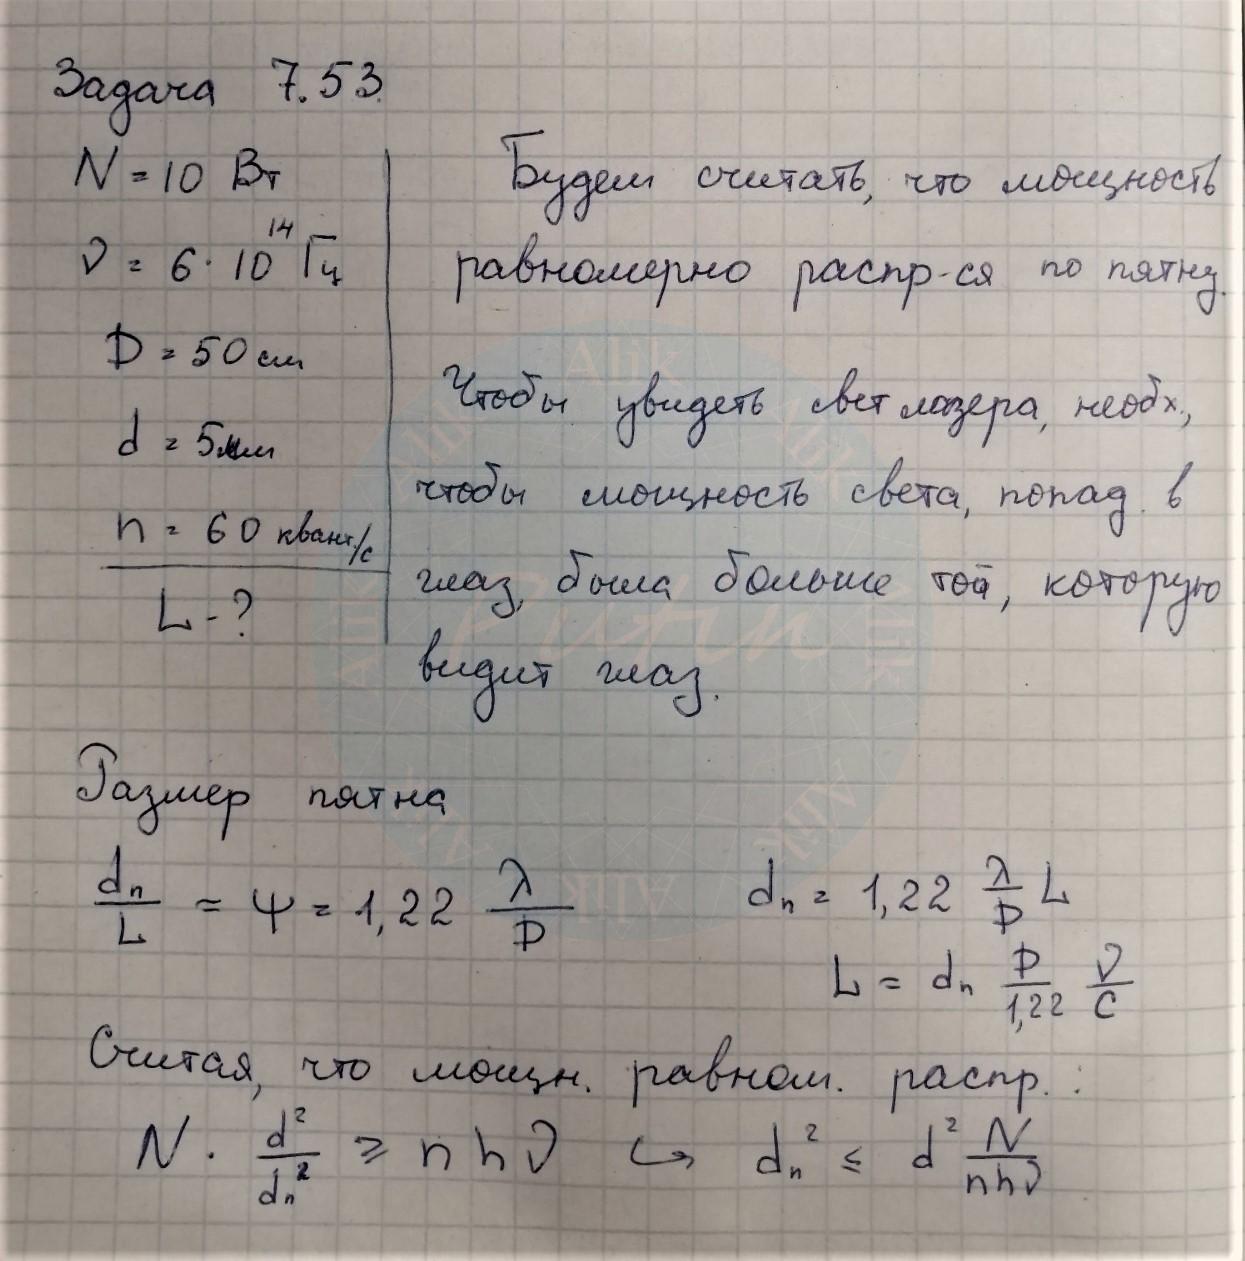 Задача 7.53.
N = 10 Вт
ν = 6·10¹⁴ Гц
D = 50 см
d = 5 мм
n = 60 квант/с
L - ?
Будем считать, что мощность
равномерно распр-ся по пятну.
Чтобы увидеть свет лазера, необх.,
чтобы мощность света, попад. в
глаз, была больше той, которую
видит глаз.
Размер пятна
dₙ/L ≈ ψ = 1,22 λ/D
dₙ = 1,22 λ/D L
L = dₙ D/1,22 ν/c
Считая, что мощн. равном. распр.:
N · d²/dₙ² ≥ nhν ↪ dₙ² ≤ d² N/nhν
Alik
Alik
Alik
Alik
Alik
Alik
Alik
Alik